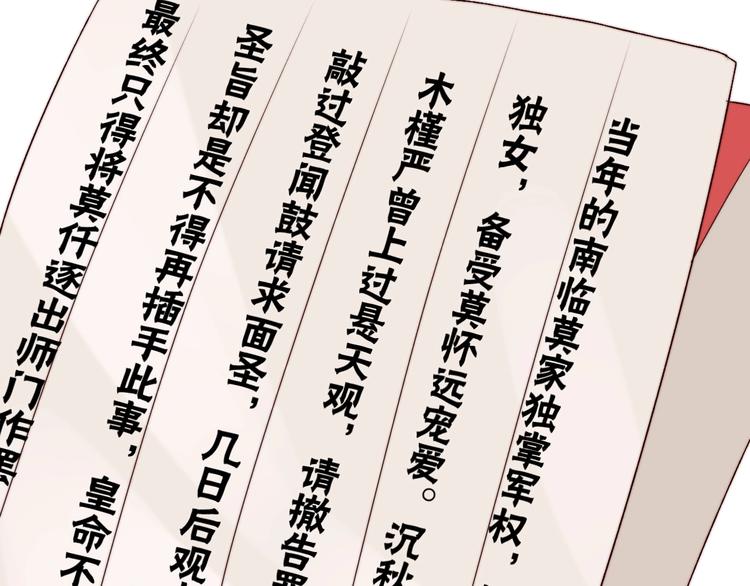 当年的南临莫家独掌军权，
独女，备受莫怀远宠爱。沉秋
木槿严曾上过悬天观，请撤告罪
敲过登闻鼓请求面圣，几日后观
圣旨却是不得再插手此事，皇命不
最终只得将莫仟逐出师门作罢